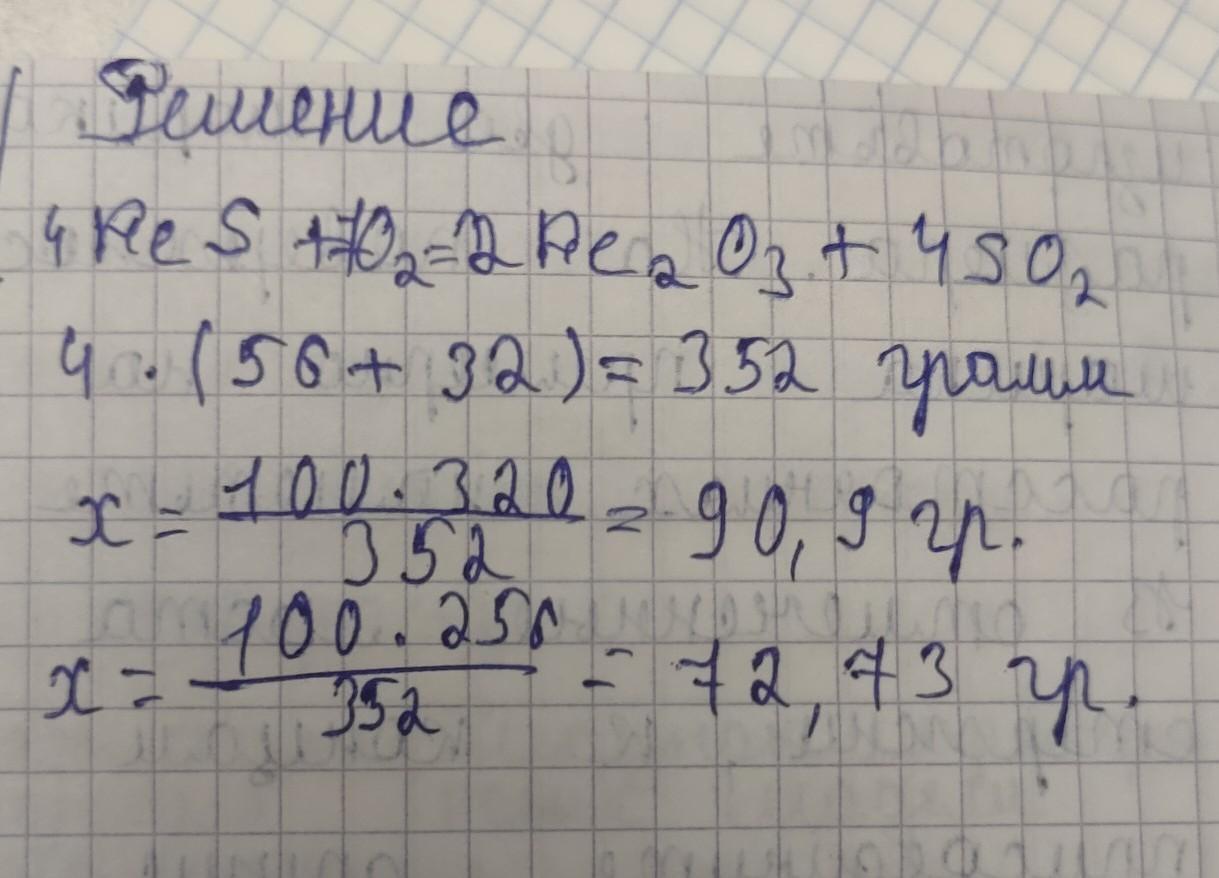 Решение
4FeS + 7O₂ = 2Fe₂O₃ + 4SO₂
4 · (56 + 32) = 352 грамм
x = 100 · 320 / 352 = 90,9 гр.
x = 100 · 256 / 352 = 72,73 гр.